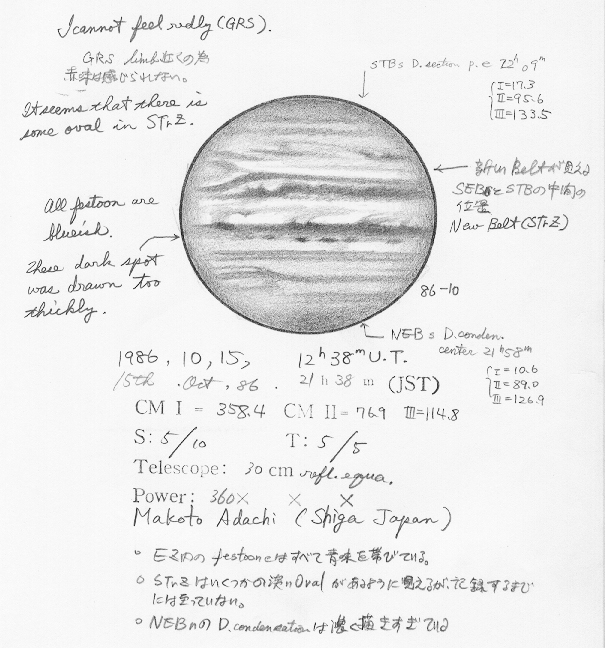 I cannot feel redly (GRS).
GRS limb近くの為
赤味は感じられない。
It seems that there is
some oval in STrZ.
STBs D.section p.e 22h 09m
I=17.3
II=95.6
III=133.5
新しいBeltが見える
SEBsとSTBの中間の
位置
New Belt (STrZ)
All festoon are
blueish.
These dark spot
was drawn too
thickly.
86-10
NEBs D.conden.
center 21h58m
I=10.6
II=89.0
III=126.9
1986, 10, 15, 12h 38m U.T.
15th. Oct, 86. 21h 38m (JST)
CM I = 358.4 CM II = 76.9 III=114.8
S: 5/10 T: 5/5
Telescope: 30 cm refl. equa.
Power: 360× × ×
Makoto Adachi (Shiga Japan)
○ EZ内のfestoonはすべて青味を帯びている。
○ STrZはいくつかの淡いOvalがあるように見えるが、記録するまで
には至っていない。
○ NEBnのD.condensationは濃く描きすぎている